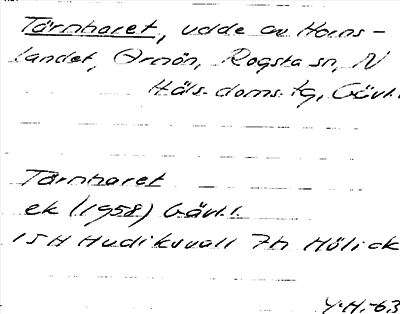 Tärnharet, udde av Horns-
landet, Arnön, Rogsta sn, N
Häls. doms. tg, Gävl.
Tärnharet
ek (1958) Gävl. l.
15H Hudiksvall 7h Hölick
Y.H.-63